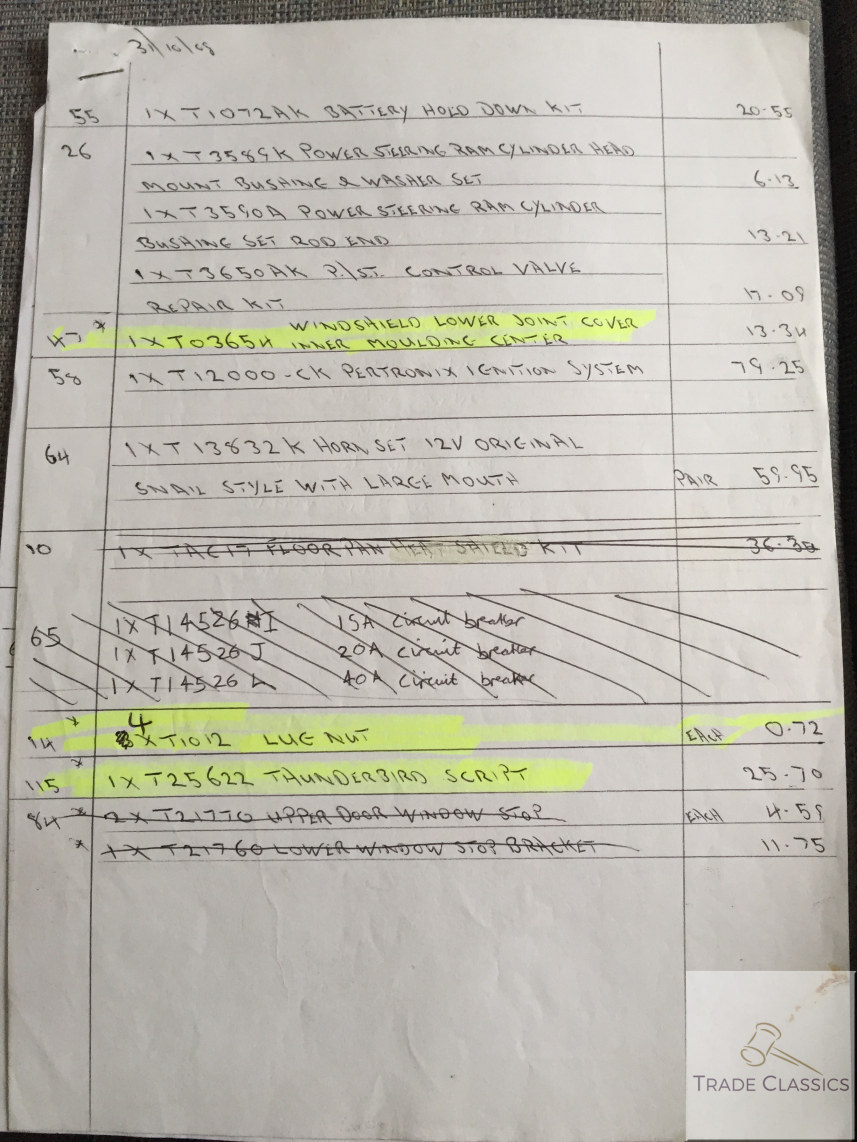 31/10/08
55 1 X T1072AK BATTERY HOLD DOWN KIT 20.55
26 1 X T3589K POWER STEERING RAM CYLINDER HEAD
MOUNT BUSHING & WASHER SET 6.13
1 X T3590A POWER STEERING RAM CYLINDER
BUSHING SET ROD END 13.21
1 X T3650AK P/ST. CONTROL VALVE
REPAIR KIT 17.09
WINDSHIELD LOWER JOINT COVER
47 * 1 X T03654 INNER MOULDING CENTER 13.34
58 1 X T12000-CK PERTRONIX IGNITION SYSTEM 79.25
64 1 X T 13832K HORN SET 12V ORIGINAL
SNAIL STYLE WITH LARGE MOUTH PAIR 59.95
10 1 X TAC17 FLOOR PAN HEAT SHIELD KIT
65 1 X T14526 I 15A circuit breaker
1 X T14526 J 20A circuit breaker
1 X T14526 L 40A circuit breaker
14 * 4 X T1012 LUG NUT EACH 0.72
115 * 1 X T25622 THUNDERBIRD SCRIPT 25.70
84 * 2 X T21770 UPPER DOOR WINDOW STOP EACH 4.59
* 1 X T21760 LOWER WINDOW STOP BRACKET 11.75
TRADE CLASSICS